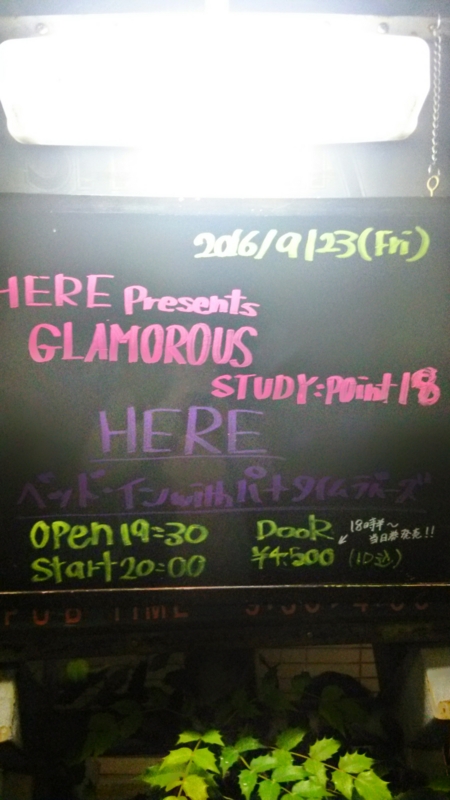 2016/9/23(Fri)
HERE Presents
GLAMOROUS
STUDY:Point18
HERE
ベッド・イン with パートタイムラバーズ
OPen 19:30
Start 20:00
DooR
¥4,500 (1D込)
18時半～
当日券発売!!
PUB TIME